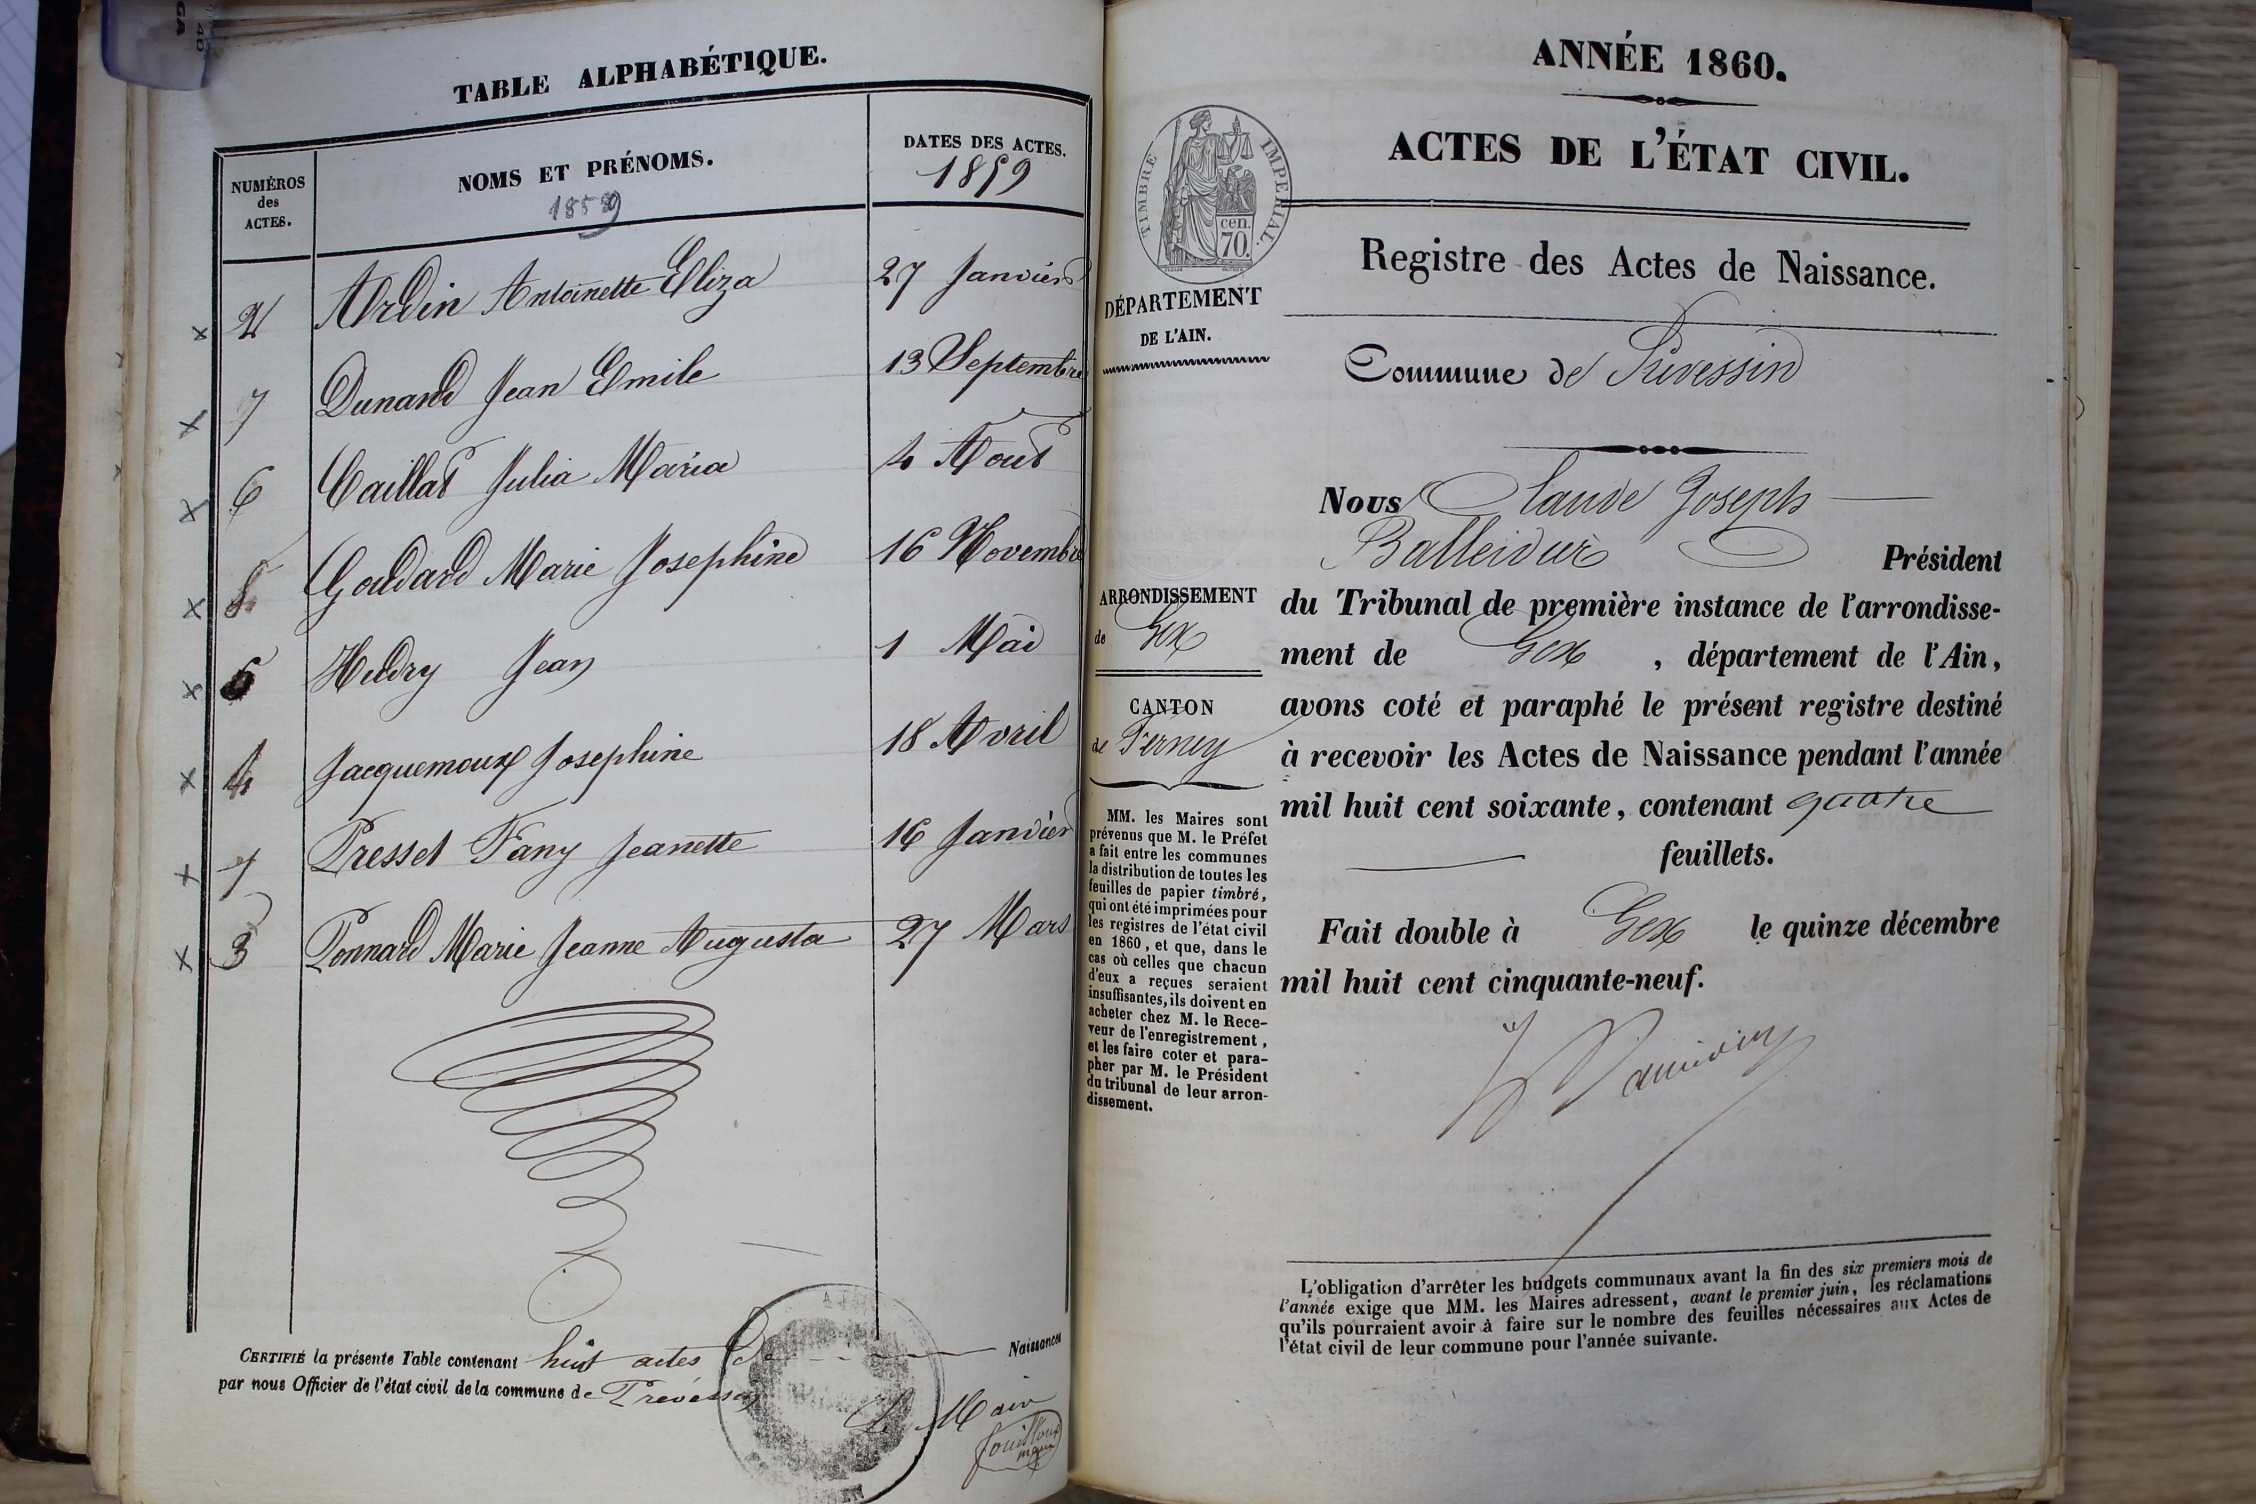 TABLE ALPHABÉTIQUE.
NUMÉROS
des
ACTES.
NOMS ET PRÉNOMS.
1859
DATES DES ACTES.
1859
2 Ardin Antoinette Eliza 27 Janvier
7 Dunand Jean Emile 13 Septembre
6 Caillat Julia Maria 4 Aout
8 Goudard Marie Josephine 16 Novembre
5 Hudry Jean 1 Mai
4 Jacquemoux Josephine 18 Avril
1 Presset Fany Jeanette 16 Janvier
3 Ponnard Marie Jeanne Augusta 27 Mars
CERTIFIÉ la présente Table contenant huit actes de Naissances
par nous Officier de l'état civil de la commune de Prévessin
Le Maire
ANNÉE 1860.
ACTES DE L'ÉTAT CIVIL.
TIMBRE IMPERIAL.
cen.
70.
Registre des Actes de Naissance.
DÉPARTEMENT
DE L'AIN.
Commune de Prévessin
ARRONDISSEMENT
de Gex
CANTON
de Ferney
MM. les Maires sont
prévenus que M. le Préfet
a fait entre les communes
la distribution de toutes les
feuilles de papier timbré,
qui ont été imprimées pour
les registres de l'état civil
en 1860, et que, dans le
cas où celles que chacun
d'eux a reçues seraient
insuffisantes, ils doivent en
acheter chez M. le Rece-
veur de l'enregistrement,
et les faire coter et para-
pher par M. le Président
du tribunal de leur arron-
dissement.
Nous Claude Joseph
Balleidier Président
du Tribunal de première instance de l'arrondisse-
ment de Gex, département de l'Ain,
avons coté et paraphé le présent registre destiné
à recevoir les Actes de Naissance pendant l'année
mil huit cent soixante, contenant quatre
feuillets.
Fait double à Gex le quinze décembre
mil huit cent cinquante-neuf.
L'obligation d'arrêter les budgets communaux avant la fin des six premiers mois de
l'année exige que MM. les Maires adressent, avant le premier juin, les réclamations
qu'ils pourraient avoir à faire sur le nombre des feuilles nécessaires aux Actes de
l'état civil de leur commune pour l'année suivante.